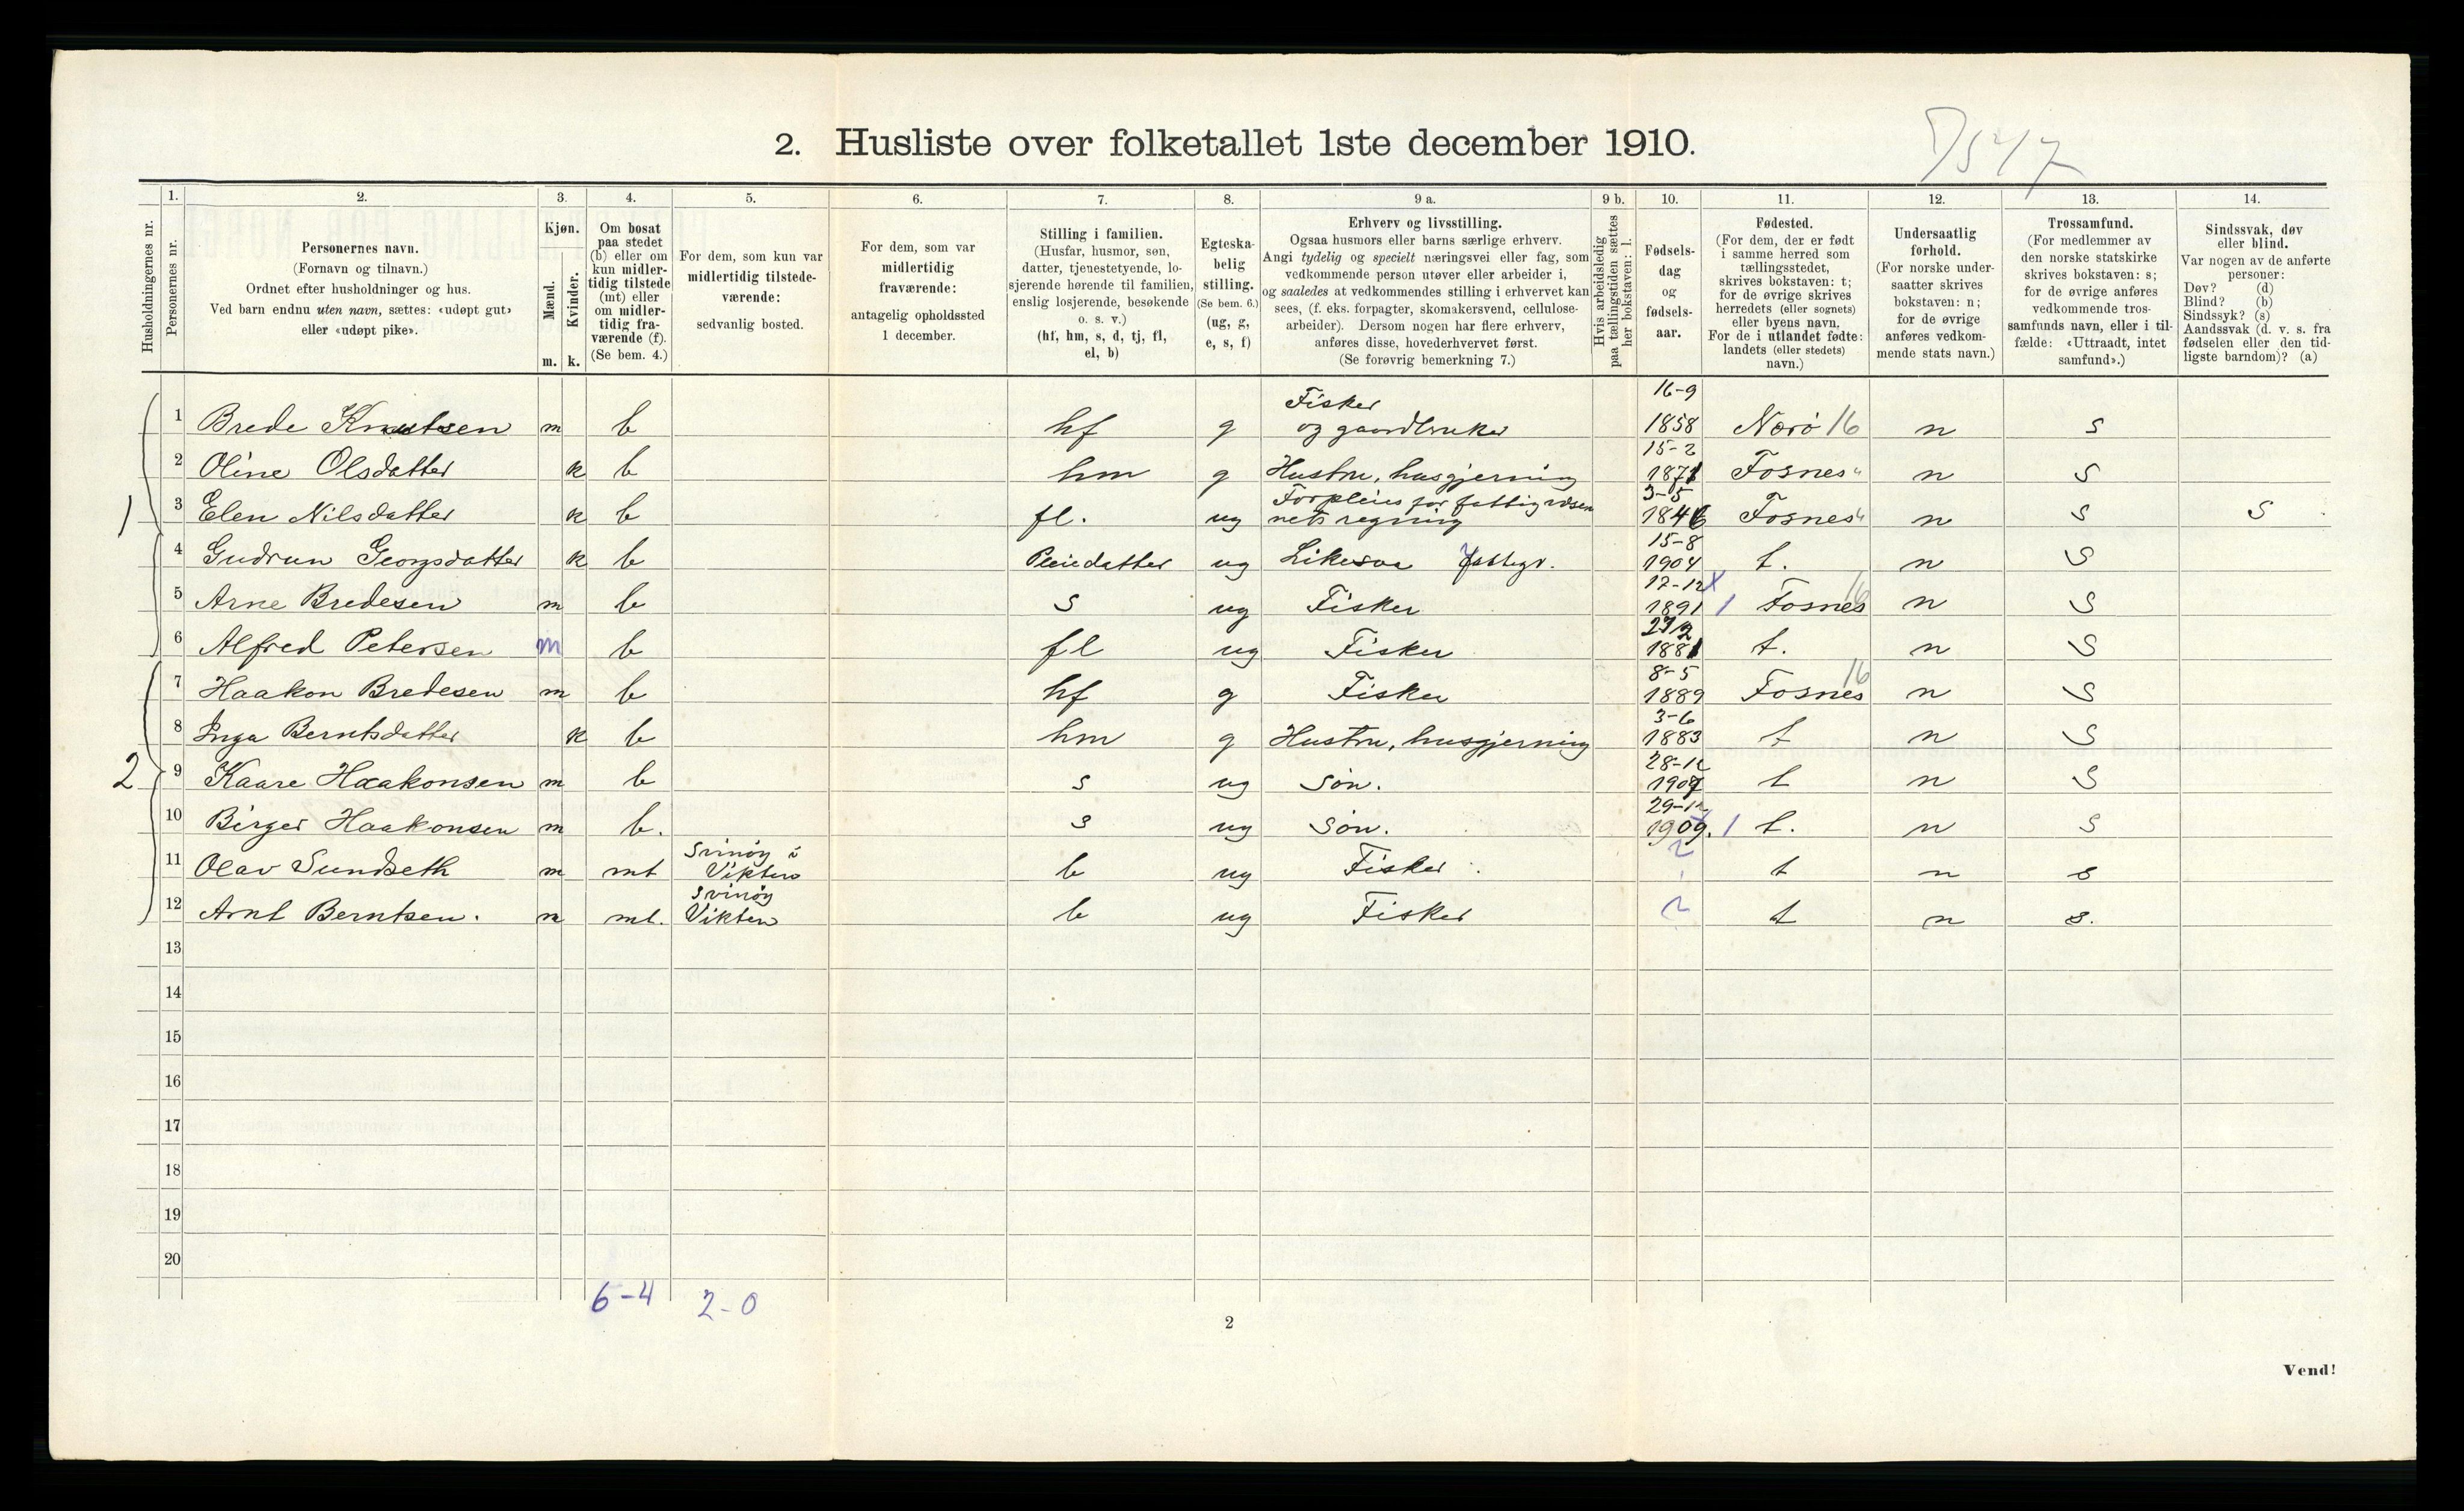 2. Husliste over folketallet 1ste december 1910.
Husholdningernes nr.
1. Personernes nr.
2. Personernes navn.
(Fornavn og tilnavn.)
Ordnet efter husholdninger og hus.
Ved barn endnu uten navn, sættes: «udøpt gut»
eller «udøpt pike».
3. Kjøn.
Mænd. m.
Kvinder. k.
4. Om bosat
paa stedet
(b) eller om
kun midler-
tidig tilstede
(mt) eller
om midler-
tidig fra-
værende (f).
(Se bem. 4.)
5. For dem, som kun var
midlertidig tilstede-
værende:
sedvanlig bosted.
6. For dem, som var
midlertidig
fraværende:
antagelig opholdssted
1 december.
7. Stilling i familien.
(Husfar, husmor, søn,
datter, tjenestetyende, lo-
sjerende hørende til familien,
enslig losjerende, besøkende
o. s. v.)
(hf, hm, s, d, tj, fl,
el, b)
8. Egteska-
belig
stilling.
(Se bem. 6.)
(ug, g,
e, s, f)
9 a. Erhverv og livsstilling.
Ogsaa husmors eller barns særlige erhverv.
Angi tydelig og specielt næringsvei eller fag, som
vedkommende person utøver eller arbeider i,
og saaledes at vedkommendes stilling i erhvervet kan
sees, (f. eks. forpagter, skomakersvend, cellulose-
arbeider). Dersom nogen har flere erhverv,
anføres disse, hovederhvervet først.
(Se forøvrig bemerkning 7.)
9 b. Hvis arbeidsledig
paa tællingstiden sættes
her bokstaven: l.
10. Fødsels-
dag
og
fødsels-
aar.
11. Fødested.
(For dem, der er født
i samme herred som
tællingsstedet,
skrives bokstaven: t;
for de øvrige skrives
herredets (eller sognets)
eller byens navn.
For de i utlandet fødte:
landets (eller stedets)
navn.)
12. Undersaatlig
forhold.
(For norske under-
saatter skrives
bokstaven: n;
for de øvrige
anføres vedkom-
mende stats navn.)
13. Trossamfund.
(For medlemmer av
den norske statskirke
skrives bokstaven: s;
for de øvrige anføres
vedkommende tros-
samfunds navn, eller i til-
fælde: «Uttraadt, intet
samfund».)
14. Sindssvak, døv
eller blind.
Var nogen av de anførte
personer:
Døv? (d)
Blind? (b)
Sindssyk? (s)
Aandssvak (d. v. s. fra
fødselen eller den tid-
ligste barndom)? (a)
1 Brede Knutsen m b hf g Fisker og gaardbruker 16-9 1858 Nærø 16 n s
2 Oline Olsdatter k b hm g Hustru, husgjerning 15-2 1871 Fosnes " n s
1 3 Elen Nilsdatter k b fl. ug Forpleies for fattigvæsenets regning 3-5 1846 Fosnes " n s s
4 Gudrun Georgsdatter k b Pleiedatter ug Likesaa fattigv. 15-8 1904 t. n s
5 Arne Bredesen m b s ug Fisker 12-12 1891 1 Fosnes 16 n s
6 Alfred Petersen m b fl ug Fisker 1881 t. n s
7 Haakon Bredesen m b hf g Fisker 8-5 1889 Fosnes 16 n s
8 Inga Berntsdatter k b hm g Hustru, husgjerning 3-6 1883 t n s
2 9 Kaare Haakonsen m b s ug søn. 28-12 1907 t n s
10 Birger Haakonsen m b. s ug søn. 29-12 1909. 1 t. n s
11 Olav Sundseth m mt Svinøy i Vikten b ug Fisker ? t n s
12 Arnt Berntsen. m mt. Svinøy Vikten b ug Fisker ? t n s.
13
14
15
16
17
18
19
20
6-4 2-0
2
Vend!